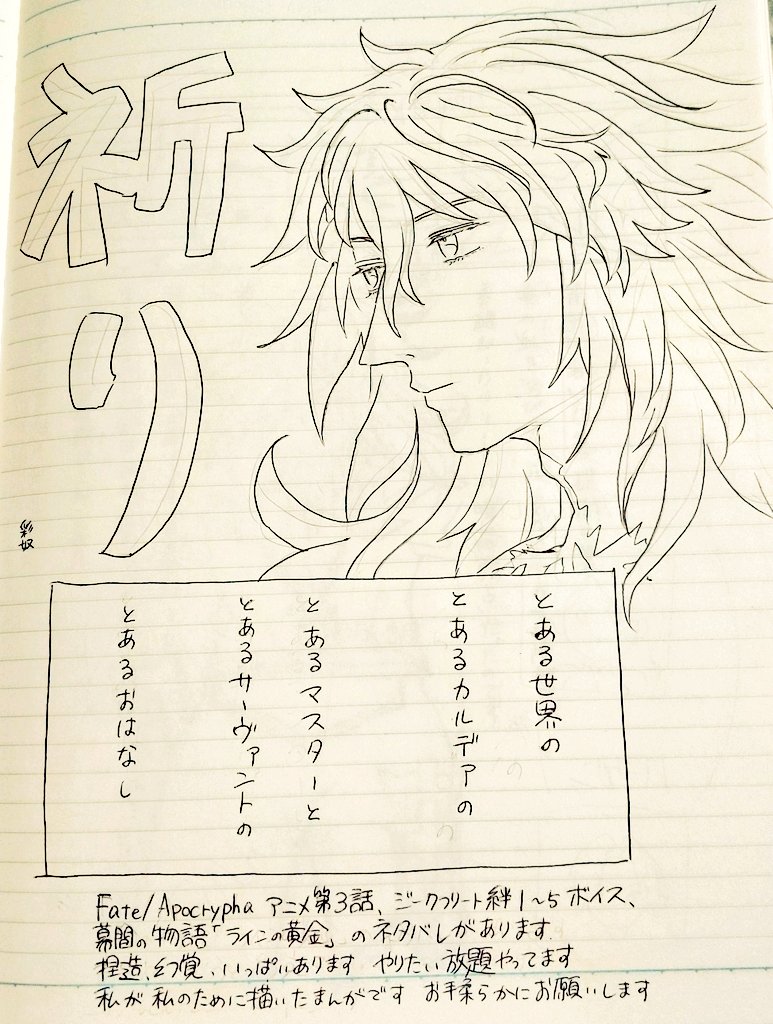 祈り
彩奴
とある世界の
とあるカルデアの
とあるマスターと
とあるサーヴァントの
とあるおはなし
Fate/Apocrypha アニメ第3話、ジークフリート絆1〜5ボイス、
幕間の物語「ラインの黄金」のネタバレがあります
捏造、幻覚、いっぱいあります やりたい放題やってます
私が私のために描いたまんがです お手柔らかにお願いします